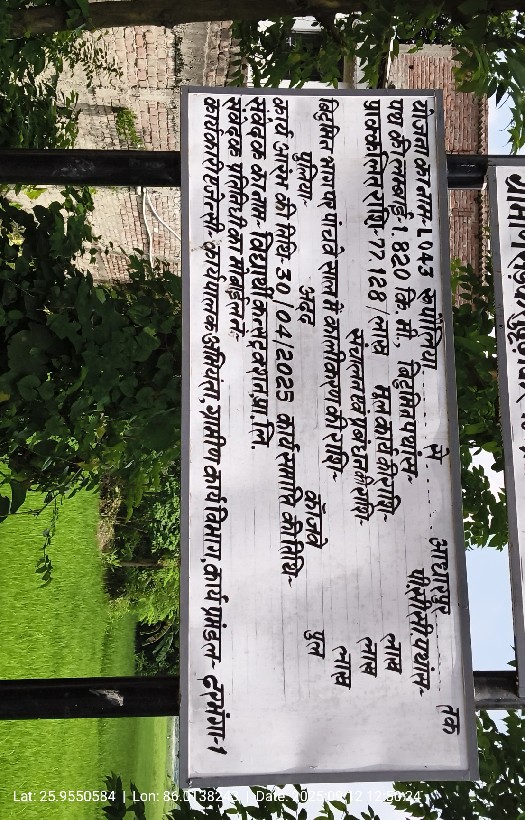 योजना का नाम- L043 रूपौलिया ........ से ........ आधारपुर ........ तक
पथ की लम्बाई- 1.820 कि. मी., बिटुमिन पथांस- पीसीसी पथांस-
प्राक्कलित राशि- 77.128 / लाख मूल कार्य की राशि- लाख
संचालन एवं प्रबंधन की राशि- लाख
बिटुमिन भाग का पांचवे साल में कालीकरण की राशि- लाख
पुलिया- अदद कॉजवे पुल
कार्य आरंभ की तिथि- 30/04/2025 कार्य समाप्ति की तिथि-
संवेदक का नाम- विद्यार्थी कन्स्ट्रक्शन प्रा. लि.
संवेदक प्रतिनिधी का मोबाईल नं-
कार्यकारी एजेन्सी- कार्यपालक अभियंता, ग्रामीण कार्य विभाग, कार्य प्रमंडल- दरभंगा-1
Lat: 25.9550584 | Lon: 86.0138243 | Date: 2025/09/12 12:50:24